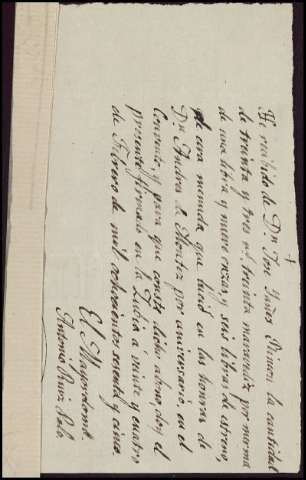 +
He recibido de Dn José Yañes Rincon la cantidad
de treinta y tres rs treinta maravedis por merma
de una libra y nueve onzas y seis libras de estreno,
de cera menuda que lució en las honras de
Dn Andres de Montez por aniversario, en el
Convento, y para que conste dicho abono, doy el
presente firmado en la Zubia á veinte y cuatro
de Febrero de mil ochocientos sesenta y cinco.
El Mayordomo
Antonio Ruiz Polo